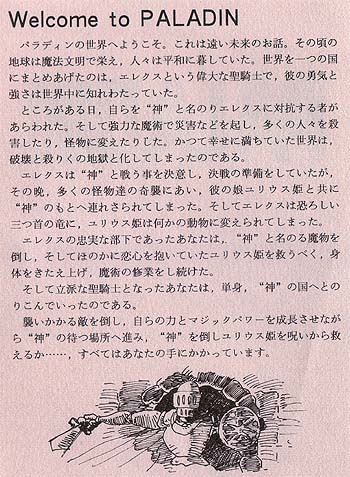 Welcome to PALADIN
パラディンの世界へようこそ。これは遠い未来のお話。その頃の
地球は魔法文明で栄え，人々は平和に暮していた。世界を一つの国
にまとめあげたのは，エレクスという偉大な聖騎士で，彼の勇気と
強さは世界中に知れわたっていた。
ところがある日，自らを“神”と名のりエレクスに対抗する者が
あらわれた。そして強力な魔術で災害などを起し，多くの人々を殺
害したり，怪物に変えたりした。かつて幸せに満ちていた世界は，
破壊と殺りくの地獄と化してしまったのである。
エレクスは“神”と戦う事を決意し，決戦の準備をしていたが，
その晩，多くの怪物達の奇襲にあい，彼の娘ユリウス姫と共に
“神”のもとへ連れさられてしまった。そしてエレクスは恐ろしい
三つ首の竜に，ユリウス姫は何かの動物に変えられてしまった。
エレクスの忠実な部下であったあなたは，“神”と名のる魔物を
倒し，そしてほのかに恋心を抱いていたユリウス姫を救うべく，身
体をきたえ上げ，魔術の修業をし続けた。
そして立派な聖騎士となったあなたは，単身，“神”の国へとの
りこんでいったのである。
襲いかかる敵を倒し，自らの力とマジックパワーを成長させなが
ら“神”の待つ場所へ進み，“神”を倒しユリウス姫を呪いから救
えるか……，すべてはあなたの手にかかっています。